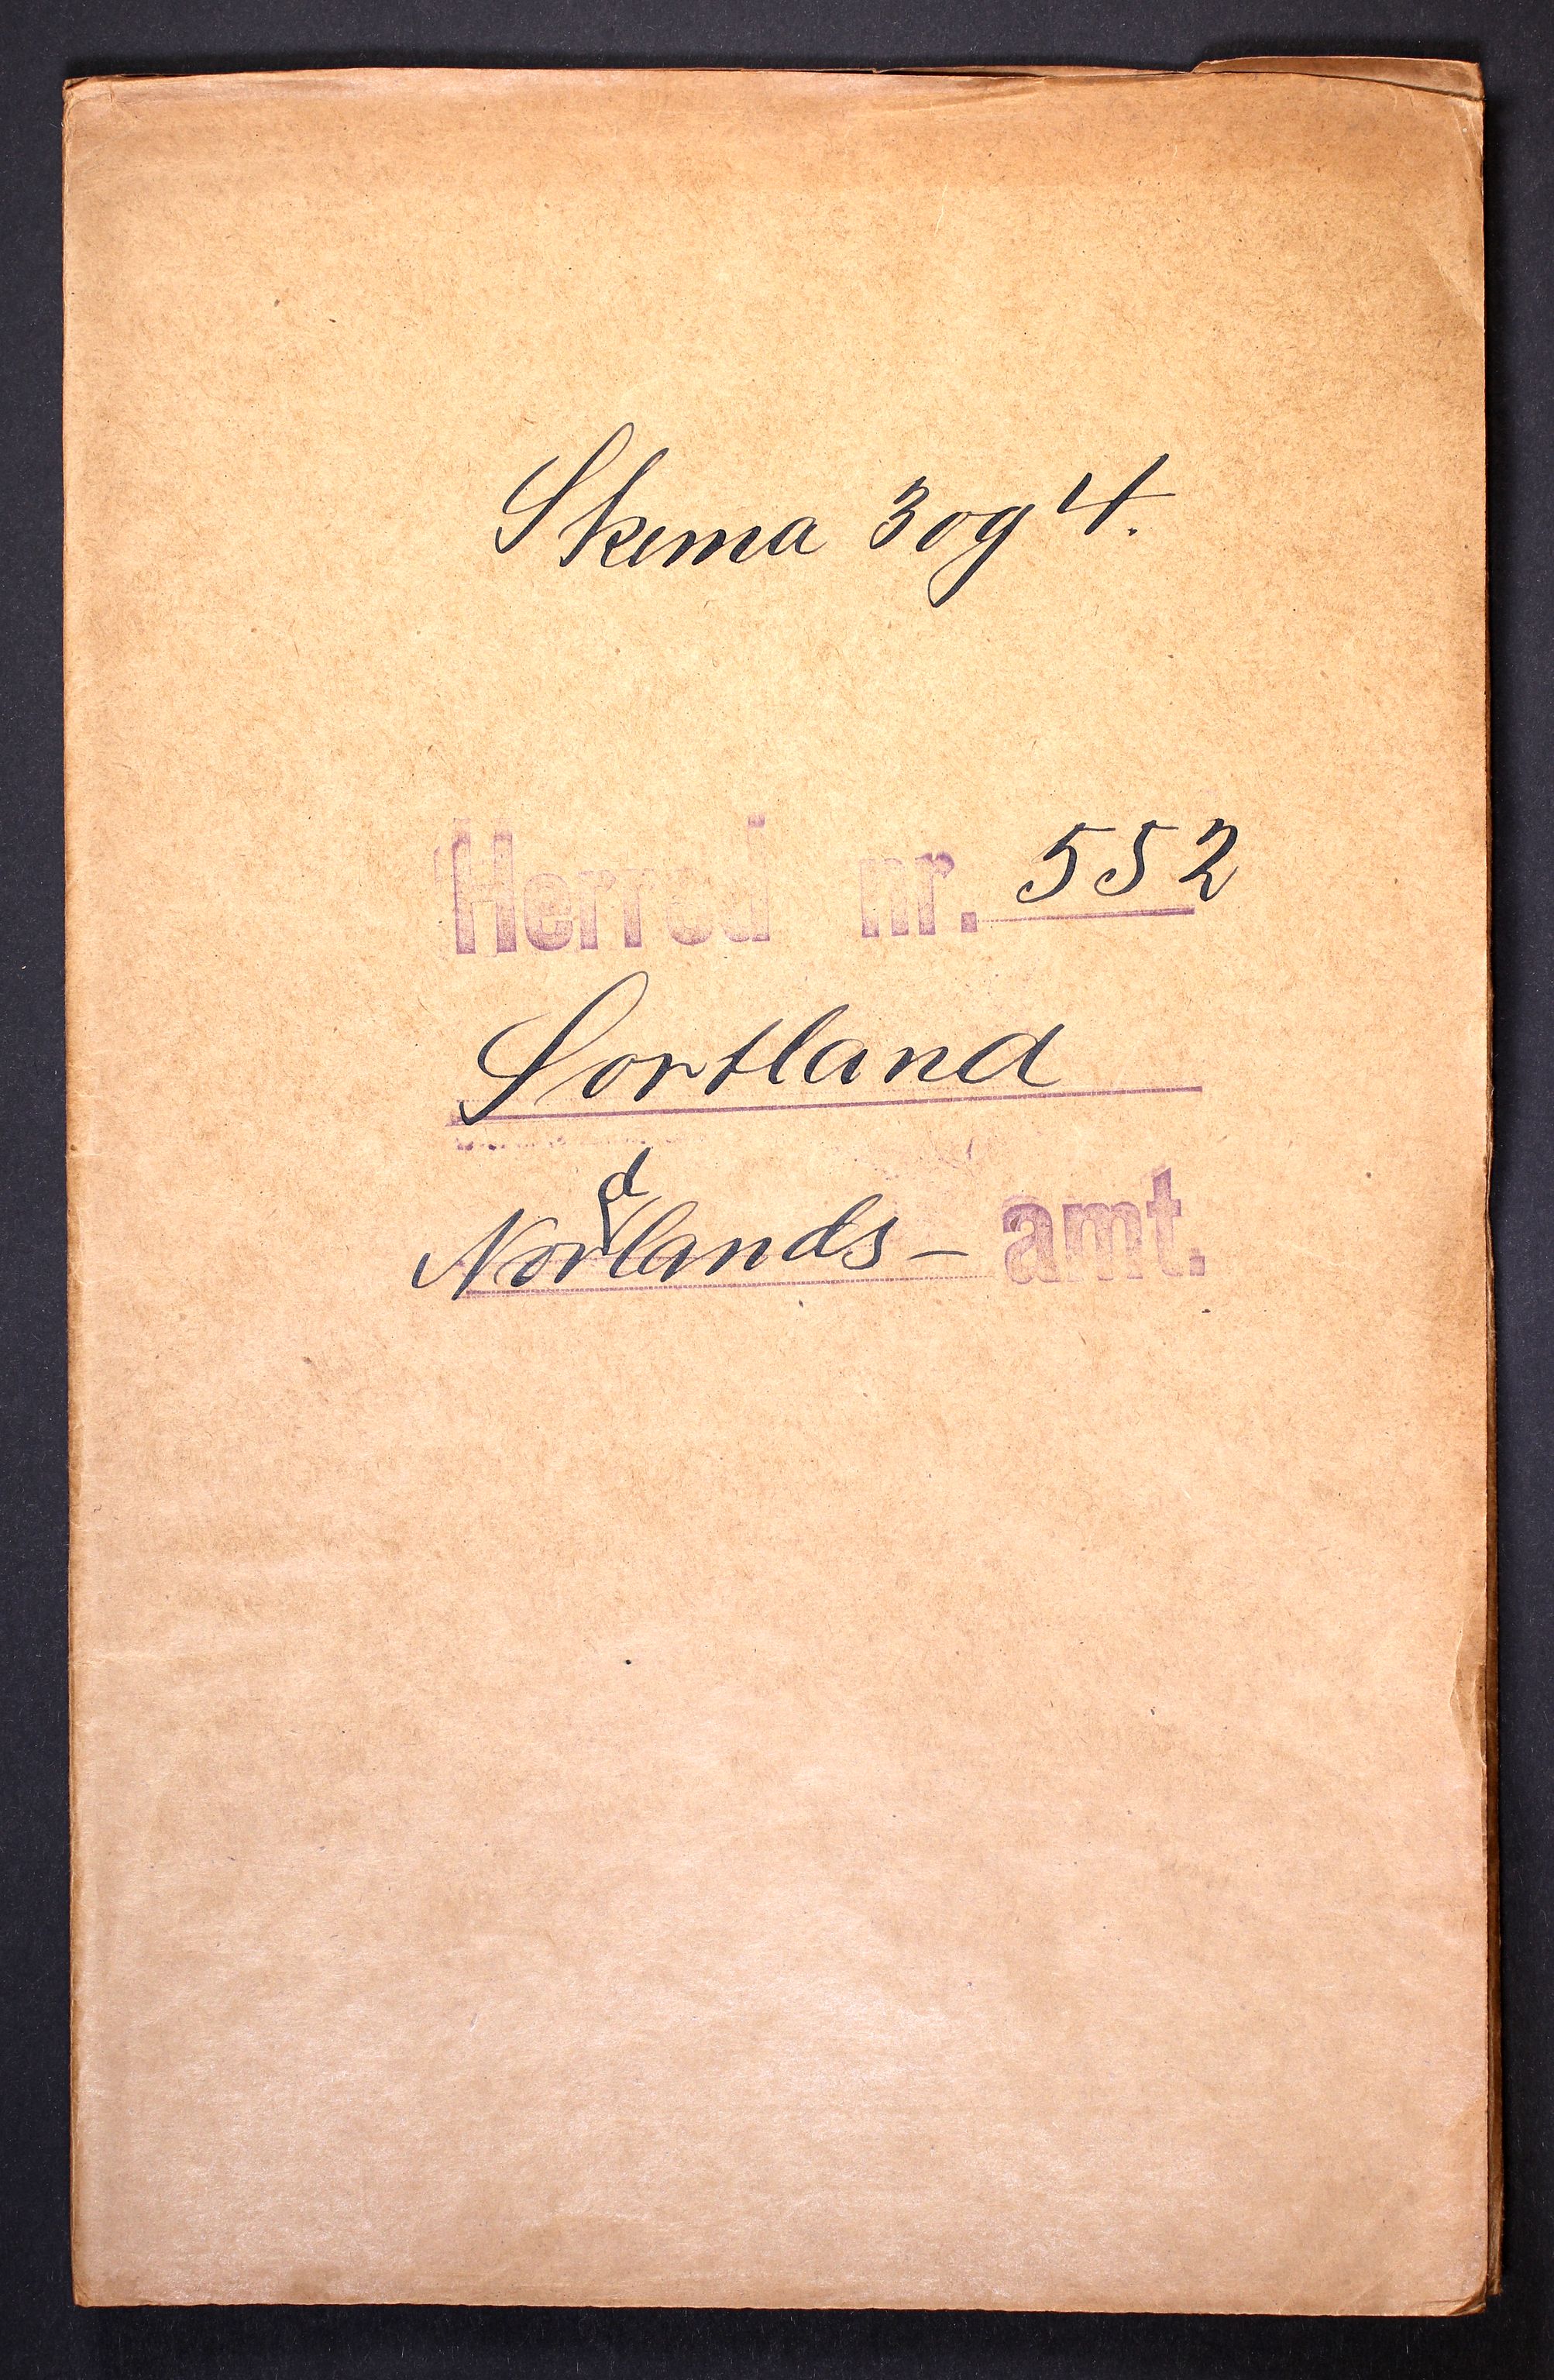 Skema 3 og 4.
Herred nr. 552
Sortland
Nordlands - amt.